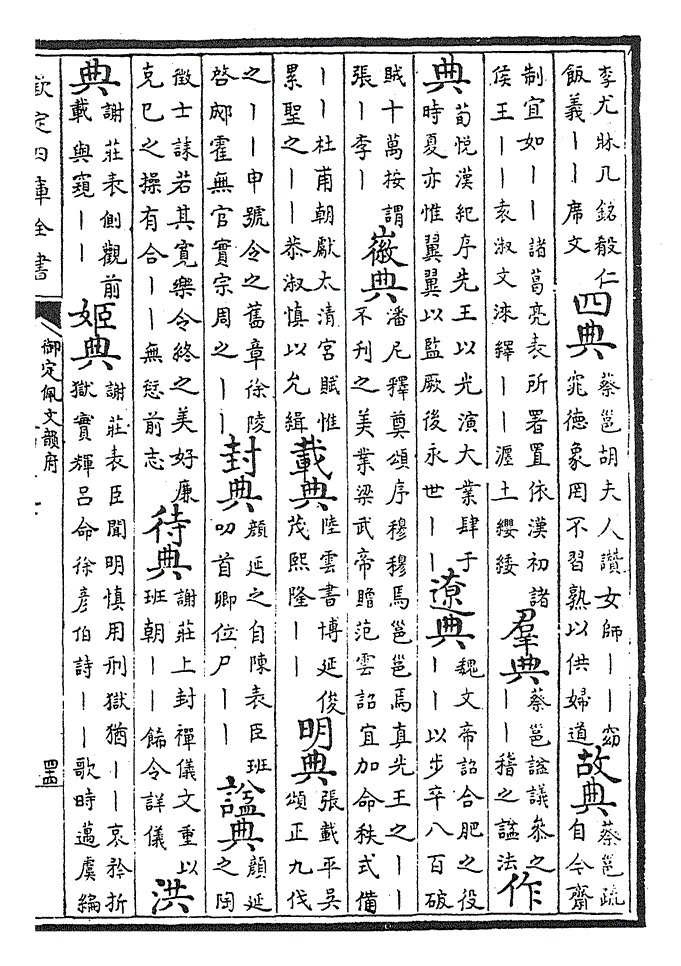 李尤牀几銘殽仁
飯義丨丨席文
四典
蔡邕胡夫人讚女師丨丨窈
窕德象罔不習熟以供婦道
故典
蔡邕疏
自今齋
制宜如丨丨諸葛亮表所署置依漢初諸
侯王丨丨袁淑文漆繹丨丨渥土纓緌
羣典
蔡邕諡議參之
丨丨稽之諡法
作
典
荀悅漢紀序先王以光演大業肆于
時夏亦惟翼翼以監厥後永世丨丨
遼典
魏文帝詔合肥之役
丨丨以步卒八百破
賊十萬按謂
張丨李丨
徽典
潘尼釋奠頌序穆穆焉邕邕焉真先王之丨丨
不刊之美業梁武帝贈范雲詔宜加命秩式備
丨丨杜甫朝獻太清宮賦惟
累聖之丨丨恭淑慎以允緝
載典
陸雲書博延俊
茂熙隆丨丨
明典
張載平吳
頌正九伐
之丨丨申號令之舊章徐陵
啓郕霍無官實宗周之丨丨
封典
顏延之自陳表臣班
叨首卿位尸丨丨
諡典
顏延
之陶
徵士誄若其寬樂令終之美好廉
克己之操有合丨丨無愆前志
待典
謝莊上封禪儀文重以
班朝丨丨飾令詳儀
洪
典
謝莊表側觀前
載與窺丨丨
姬典
謝莊表臣聞明慎用刑獄猶丨丨哀矜折
獄實輝呂命徐彥伯詩丨丨歌時邁虞編
欽定四庫全書
御定佩文韻府